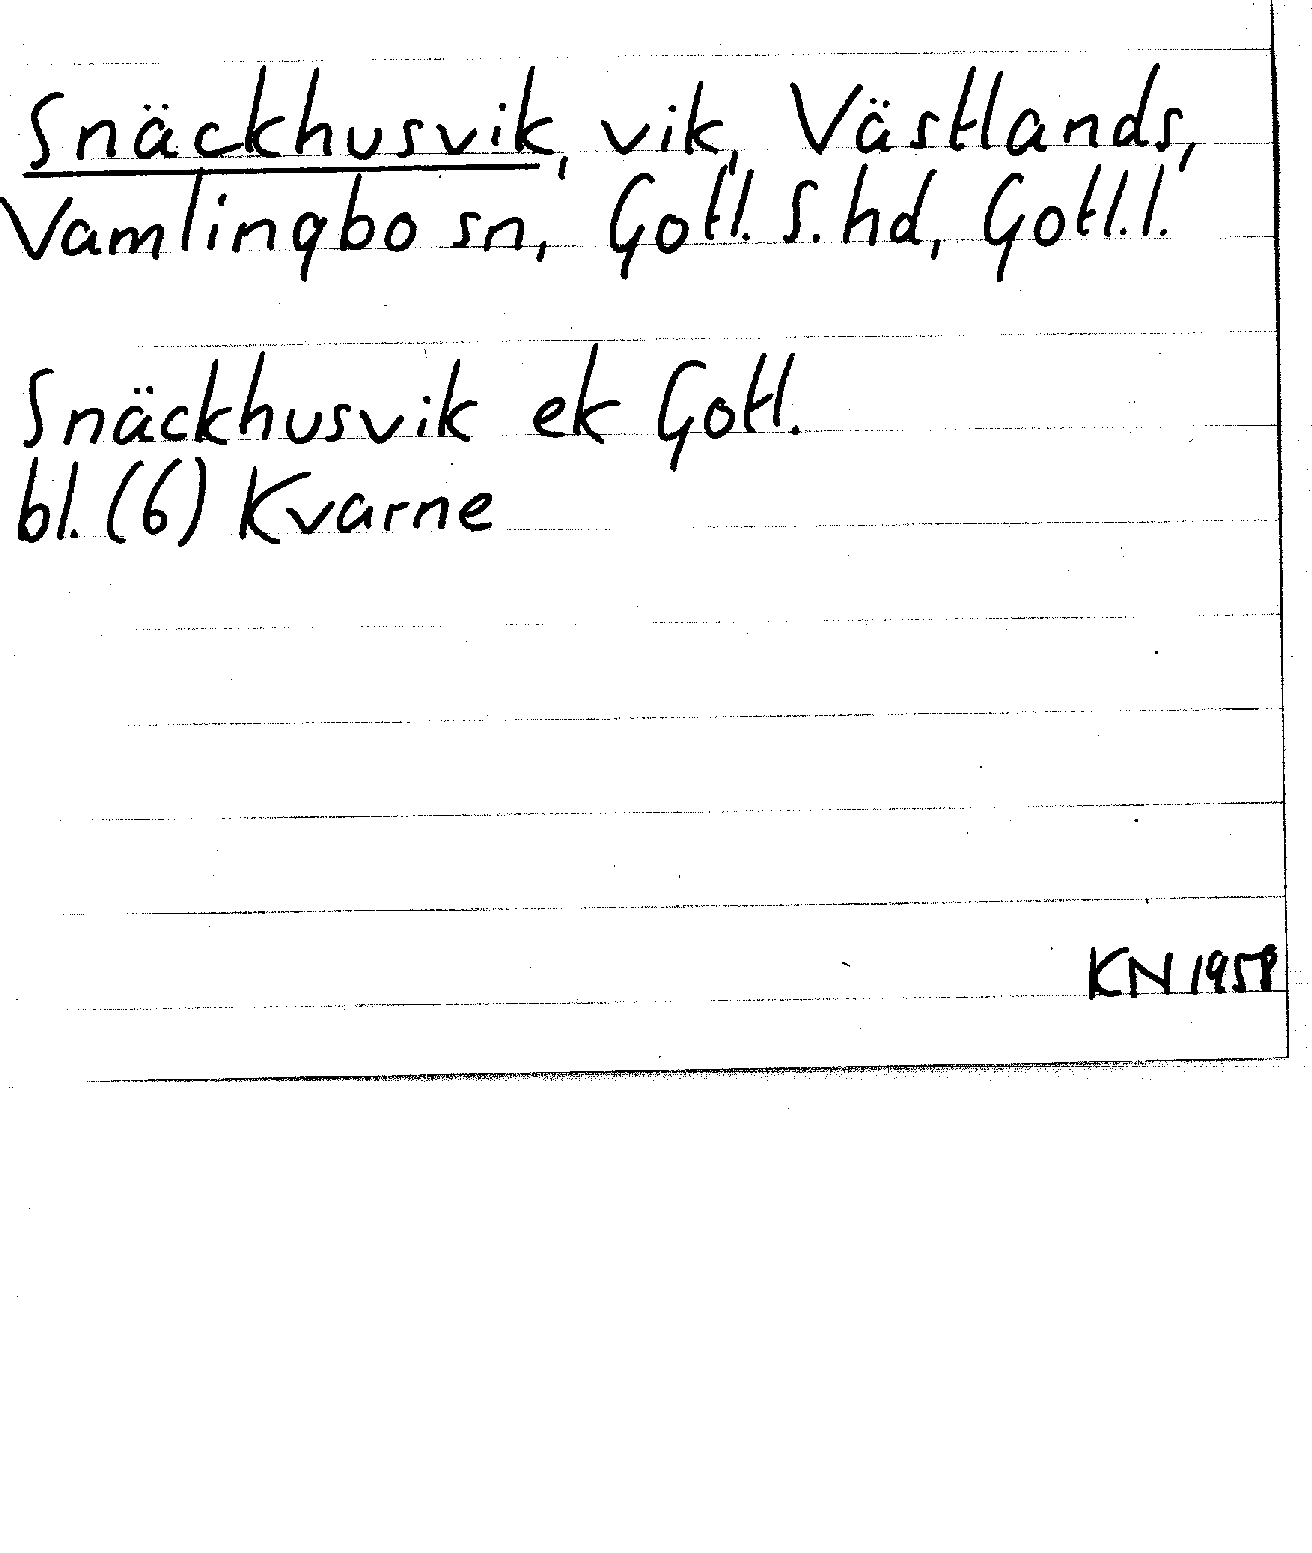 Snäckhusvik, vik, Västlands,
Vamlingbo sn, Gotl. S. hd, Gotl. l.
Snäckhusvik ek Gotl.
bl. (6) Kvarne
KN 1958